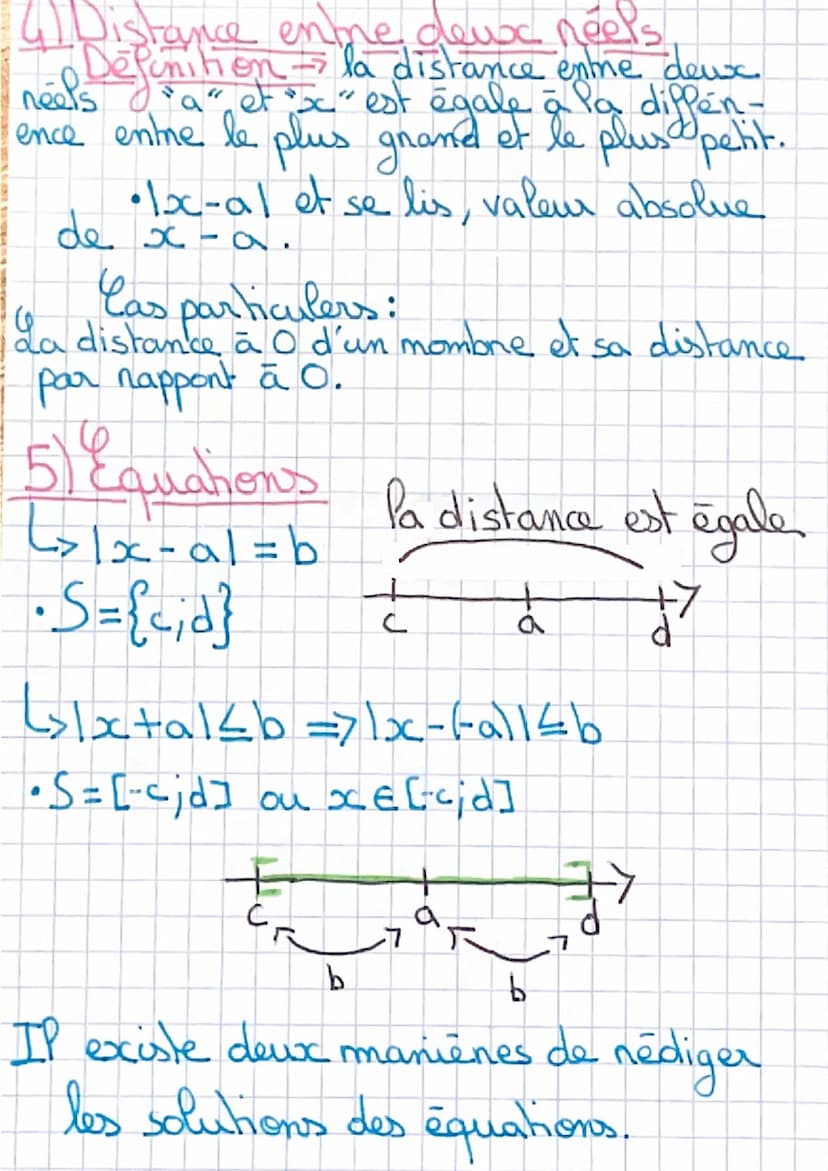 4) Distance entre deux réels
Définition → la distance entre deux
réels "a" et "x" est égale à la différ-
ence entre le plus grand et le plus petit.
• |x-a| et se lis, valeur absolue
de x - a.
Cas particulers :
La distance à 0 d'un nombre et sa distance
par rapport à 0.
5) Equations
la distance est égale
↳ |x - a| = b
• S={c;d}
c a d
↳ |x+a| ≤ b => |x-(-a)| ≤ b
• S = [-c;d] ou x ∈ [-c;d]
c a d
b b
Il existe deux manières de rédiger
les solutions des équations.